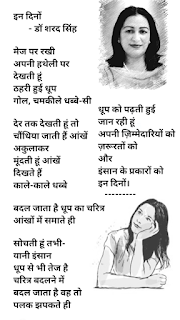 इन दिनों
- डॉ शरद सिंह
मेज पर रखी
अपनी हथेली पर
देखती हूं
ठहरी हुई धूप
गोल, चमकीले धब्बे-सी
देर तक देखती हूं तो
चौंधिया जाती हैं आंखें
अकुलाकर
मूंदती हूं आंखें
दिखते हैं
काले-काले धब्बे
बदल जाता है धूप का चरित्र
आंखों में समाते ही
सोचती हूं तभी-
यानी इंसान
धूप से भी तेज है
चरित्र बदलने में
बदल जाता है वह तो
पलक झपकते ही
धूप को पढ़ती हुई
जान रही हूं
अपनी ज़िम्मेदारियों को
ज़रूरतों को
और
इंसान के प्रकारों को
इन दिनों।
---------